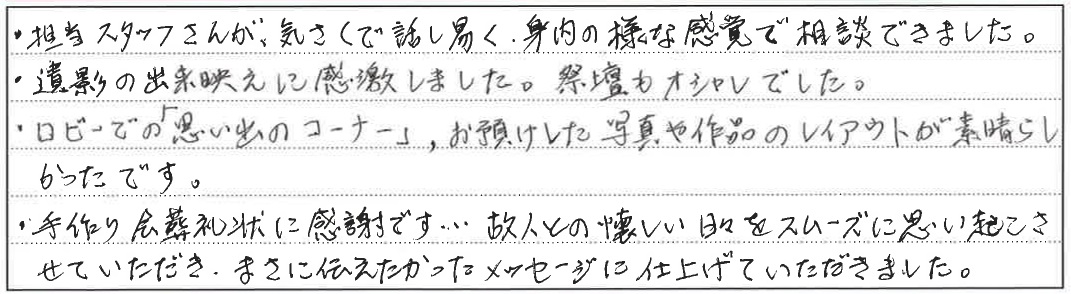 ・担当スタッフさんが、気さくで話し易く、身内の様な感覚で相談できました。
・遺影の出来映えに感激しました。祭壇もオシャレでした。
・ロビーでの「思い出のコーナー」，お預けした写真や作品のレイアウトが素晴らし
かったです。
・手作り会葬礼状に感謝です… 故人との懐しい日々をスムーズに思い起こさ
せていただき、まさに伝えたかったメッセージに仕上げていただきました。